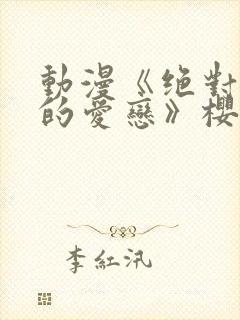 動漫《绝對
的愛戀》櫻
李紅汛